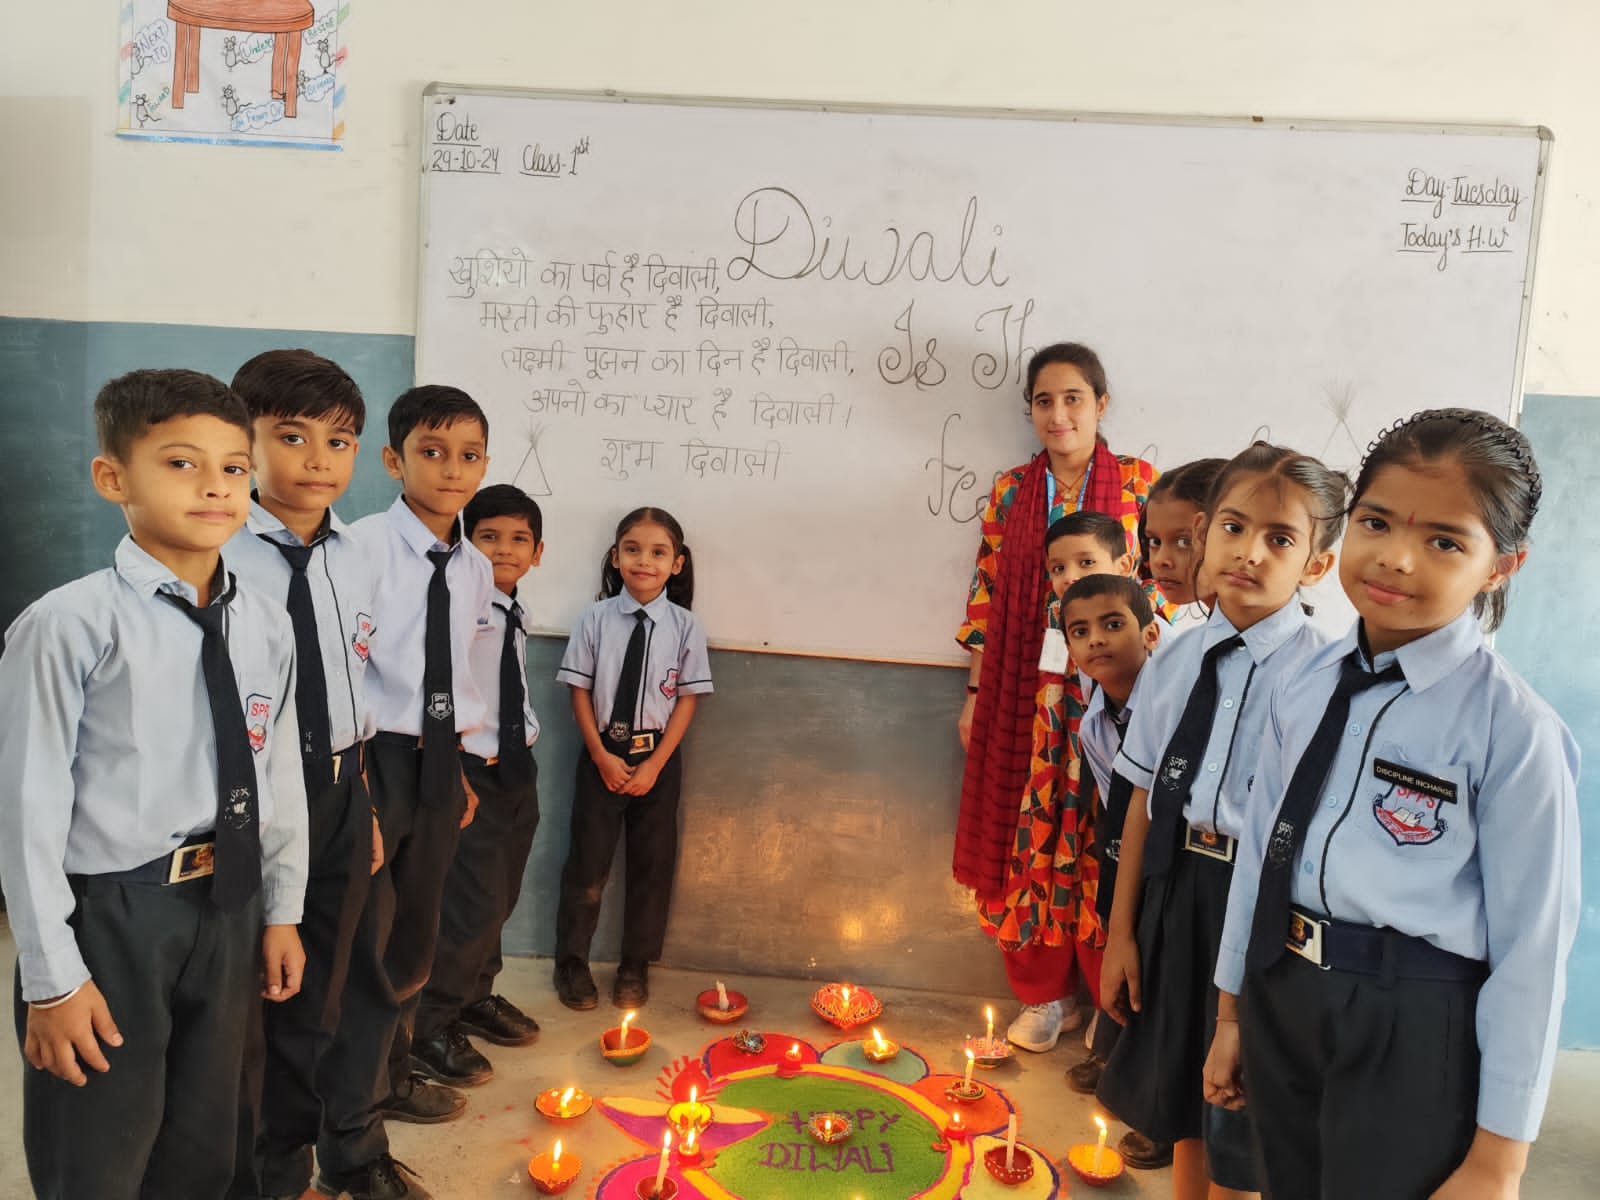 NEXT TO
Under
BESIDE
BEHIND
In Front Of
Date
29-10-24 Class-1st
Day-Tuesday
Today's H.W
Diwali
Is Th
खुशियो का पर्व है दिवाली,
मस्ती की फुहार है दिवाली,
लक्ष्मी पूजन का दिन है दिवाली,
अपनो का प्यार है दिवाली।
शुभ दिवाली
SPPS
SPPS
SPPS
SPPS
SPPS
DISCIPLINE INCHARGE
SPPS
SPPS
HAPPY
DIWALI